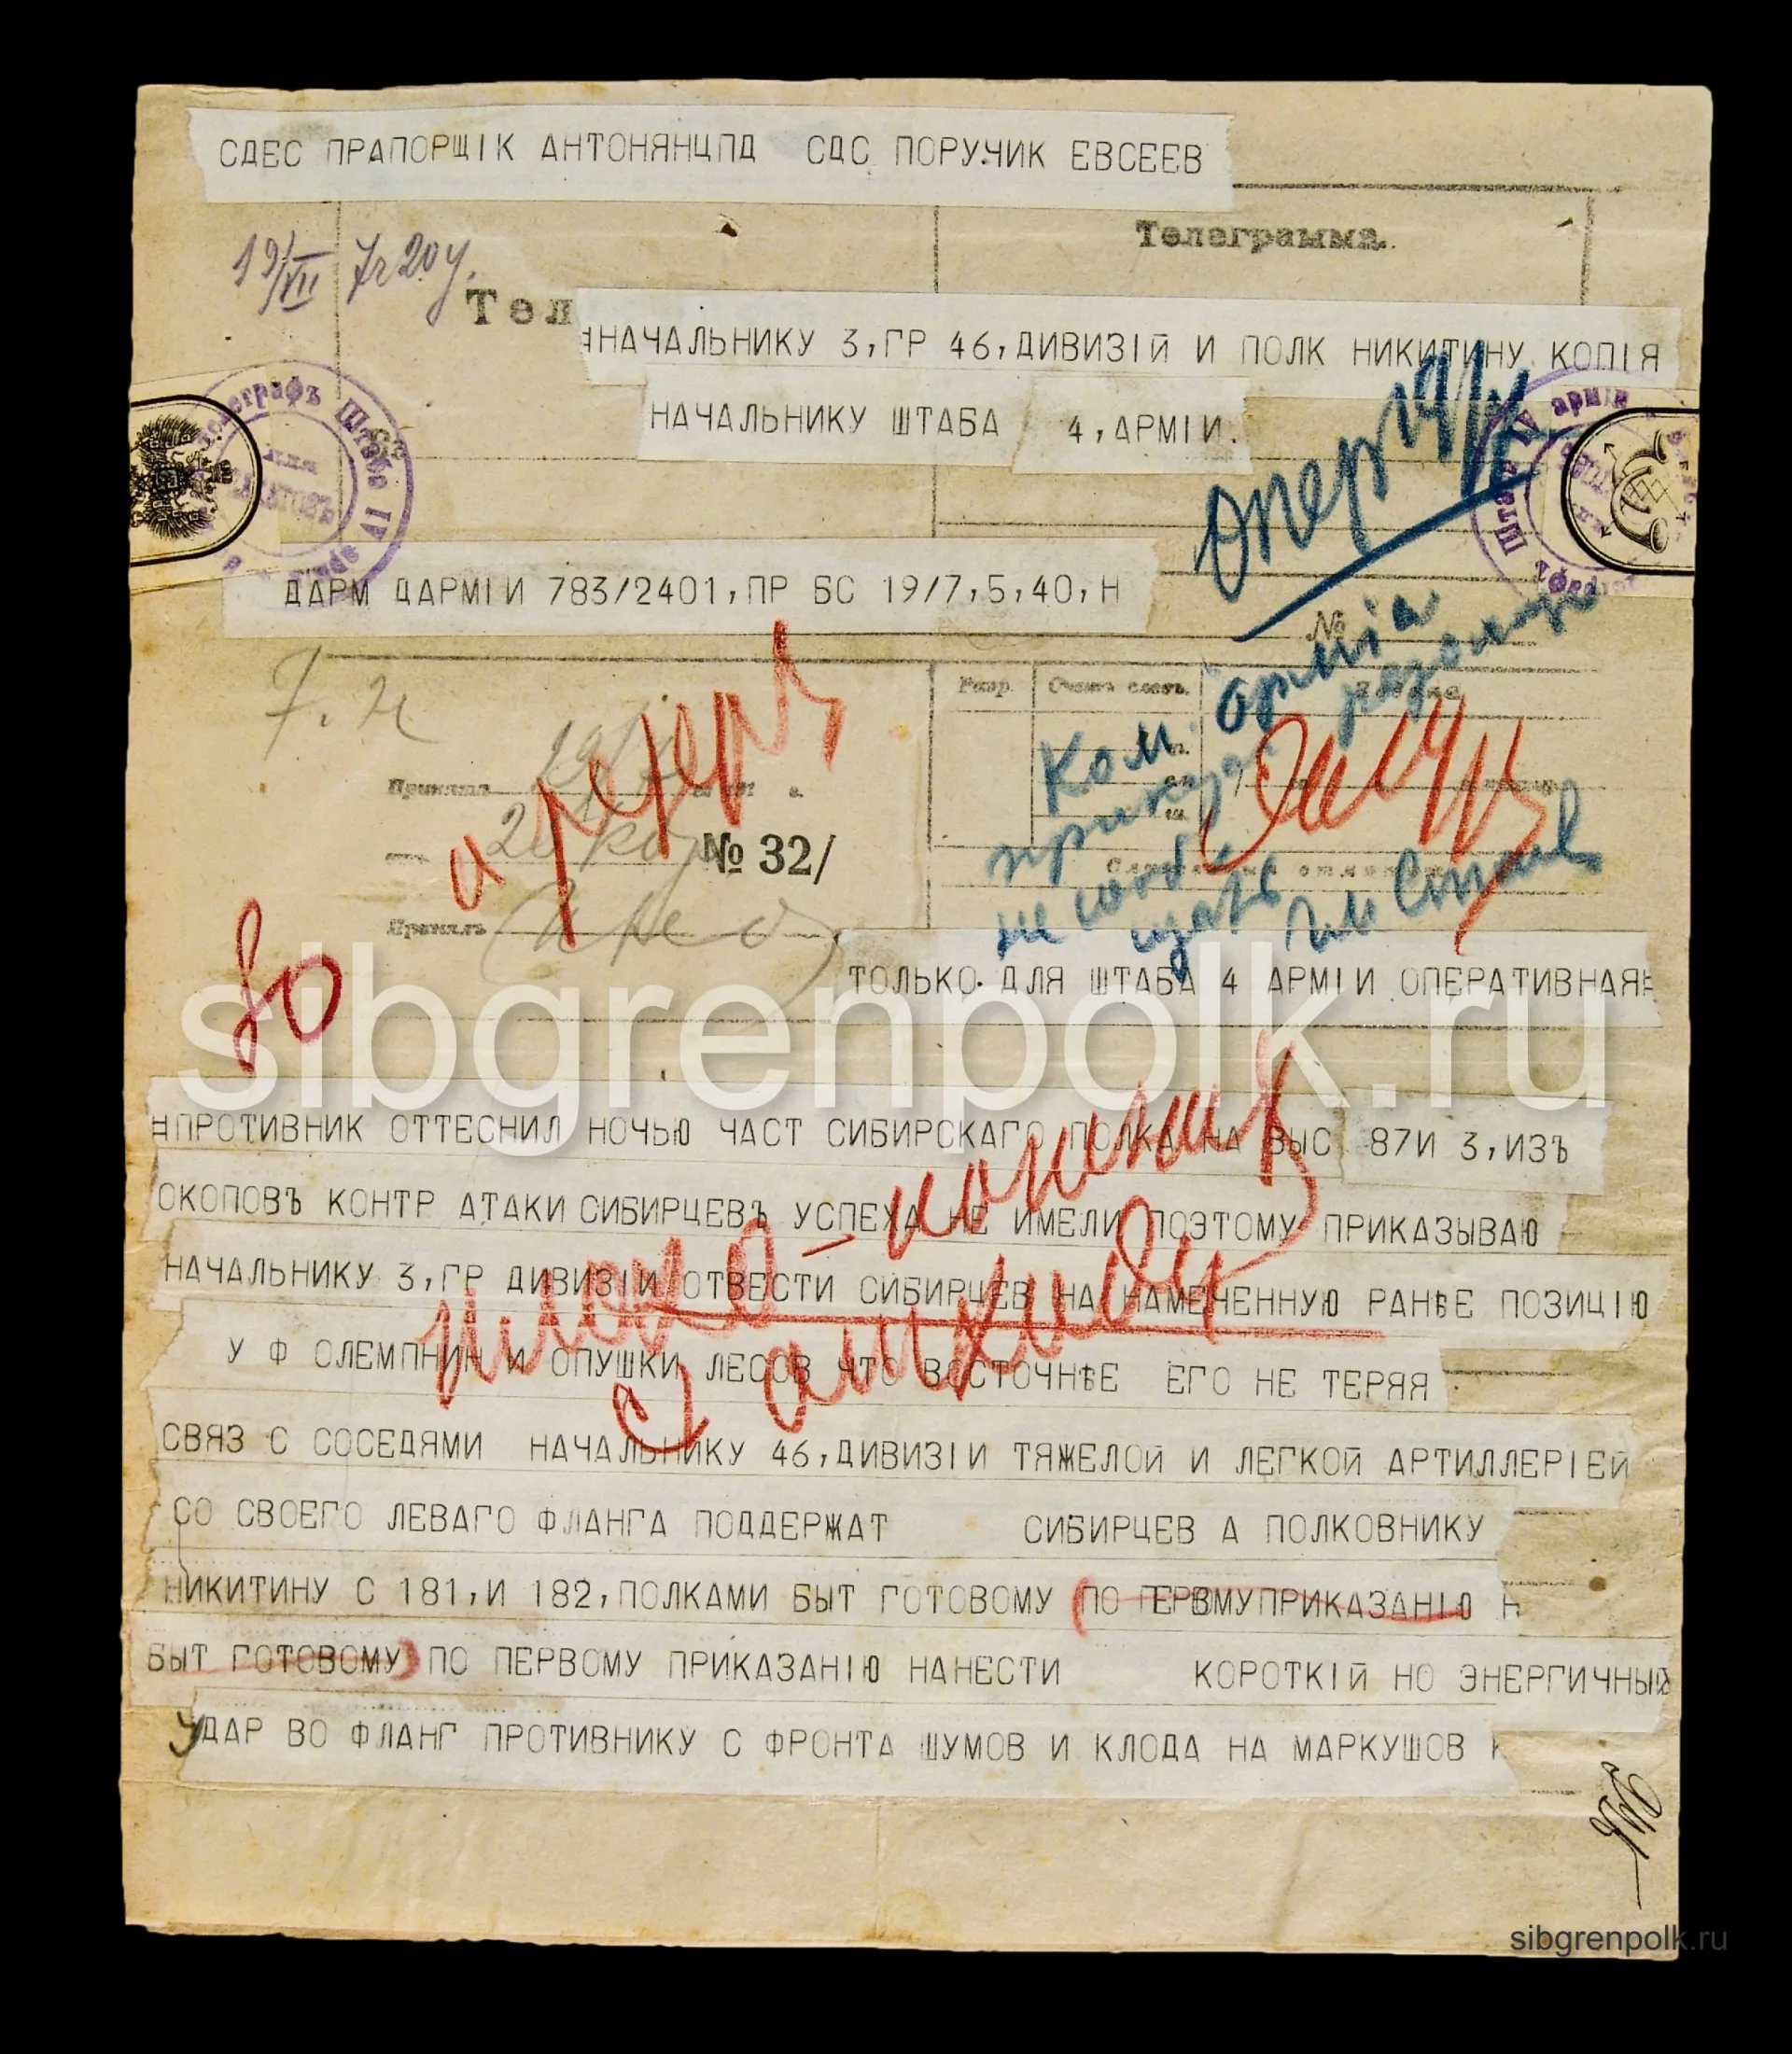 СДЕС ПРАПОРЩIК АНТОНЯНЦПД СДС ПОРУЧИК ЕВСЕЕВ
Телеграмма.
19/VII 7ч 20 у.
Тел
НАЧАЛЬНИКУ 3,ГР 46,ДИВИЗIЙ И ПОЛК НИКИТИНУ КОПIЯ
НАЧАЛЬНИКУ ШТАБА 4,АРМIИ.
Опер 19/VII
телеграфъ Штаба IV арміи
Штаба IV арміи
ДАРМ ДАРМIИ 783/2401,ПР БС 19/7,5,40,Н
№
Разр. Счетъ словъ.
Ком. арміи
приказа
не сооб
щать
Принята
№ 32/
Принялъ
80
ТОЛЬКО ДЛЯ ШТАБА 4 АРМIИ ОПЕРАТИВНАЯ=
=ПРОТИВНИК ОТТЕСНИЛ НОЧЬЮ ЧАСТ СИБИРСКАГО ПОЛКА НА ВЫС 87И 3,ИЗЪ
ОКОПОВЪ КОНТР АТАКИ СИБИРЦЕВЪ УСПЕХА НЕ ИМЕЛИ ПОЭТОМУ ПРИКАЗЫВАЮ
НАЧАЛЬНИКУ 3,ГР ДИВИЗIИ ОТВЕСТИ СИБИРЦЕВ НА НАМЕЧЕННУЮ РАНѢЕ ПОЗИЦIЮ
У Ф ОЛЕМПНИН И ОПУШКИ ЛЕСОВ ЧТО ВОСТОЧНѢЕ ЕГО НЕ ТЕРЯЯ
СВЯЗ С СОСЕДЯМИ НАЧАЛЬНИКУ 46,ДИВИЗIИ ТЯЖЕЛОЙ И ЛЕГКОЙ АРТИЛЛЕРIЕЙ
СО СВОЕГО ЛЕВАГО ФЛАНГА ПОДДЕРЖАТ СИБИРЦЕВ А ПОЛКОВНИКУ
НИКИТИНУ С 181,И 182,ПОЛКАМИ БЫТ ГОТОВОМУ ПО ПЕРВМУПРИКАЗАНIЮ Н
БЫТ ГОТОВОМУ ПО ПЕРВОМУ ПРИКАЗАНIЮ НАНЕСТИ КОРОТКIЙ НО ЭНЕРГИЧНЫЙ
УДАР ВО ФЛАНГ ПРОТИВНИКУ С ФРОНТА ШУМОВ И КЛОДА НА МАРКУШОВ
sibgrenpolk.ru
sibgrenpolk.ru